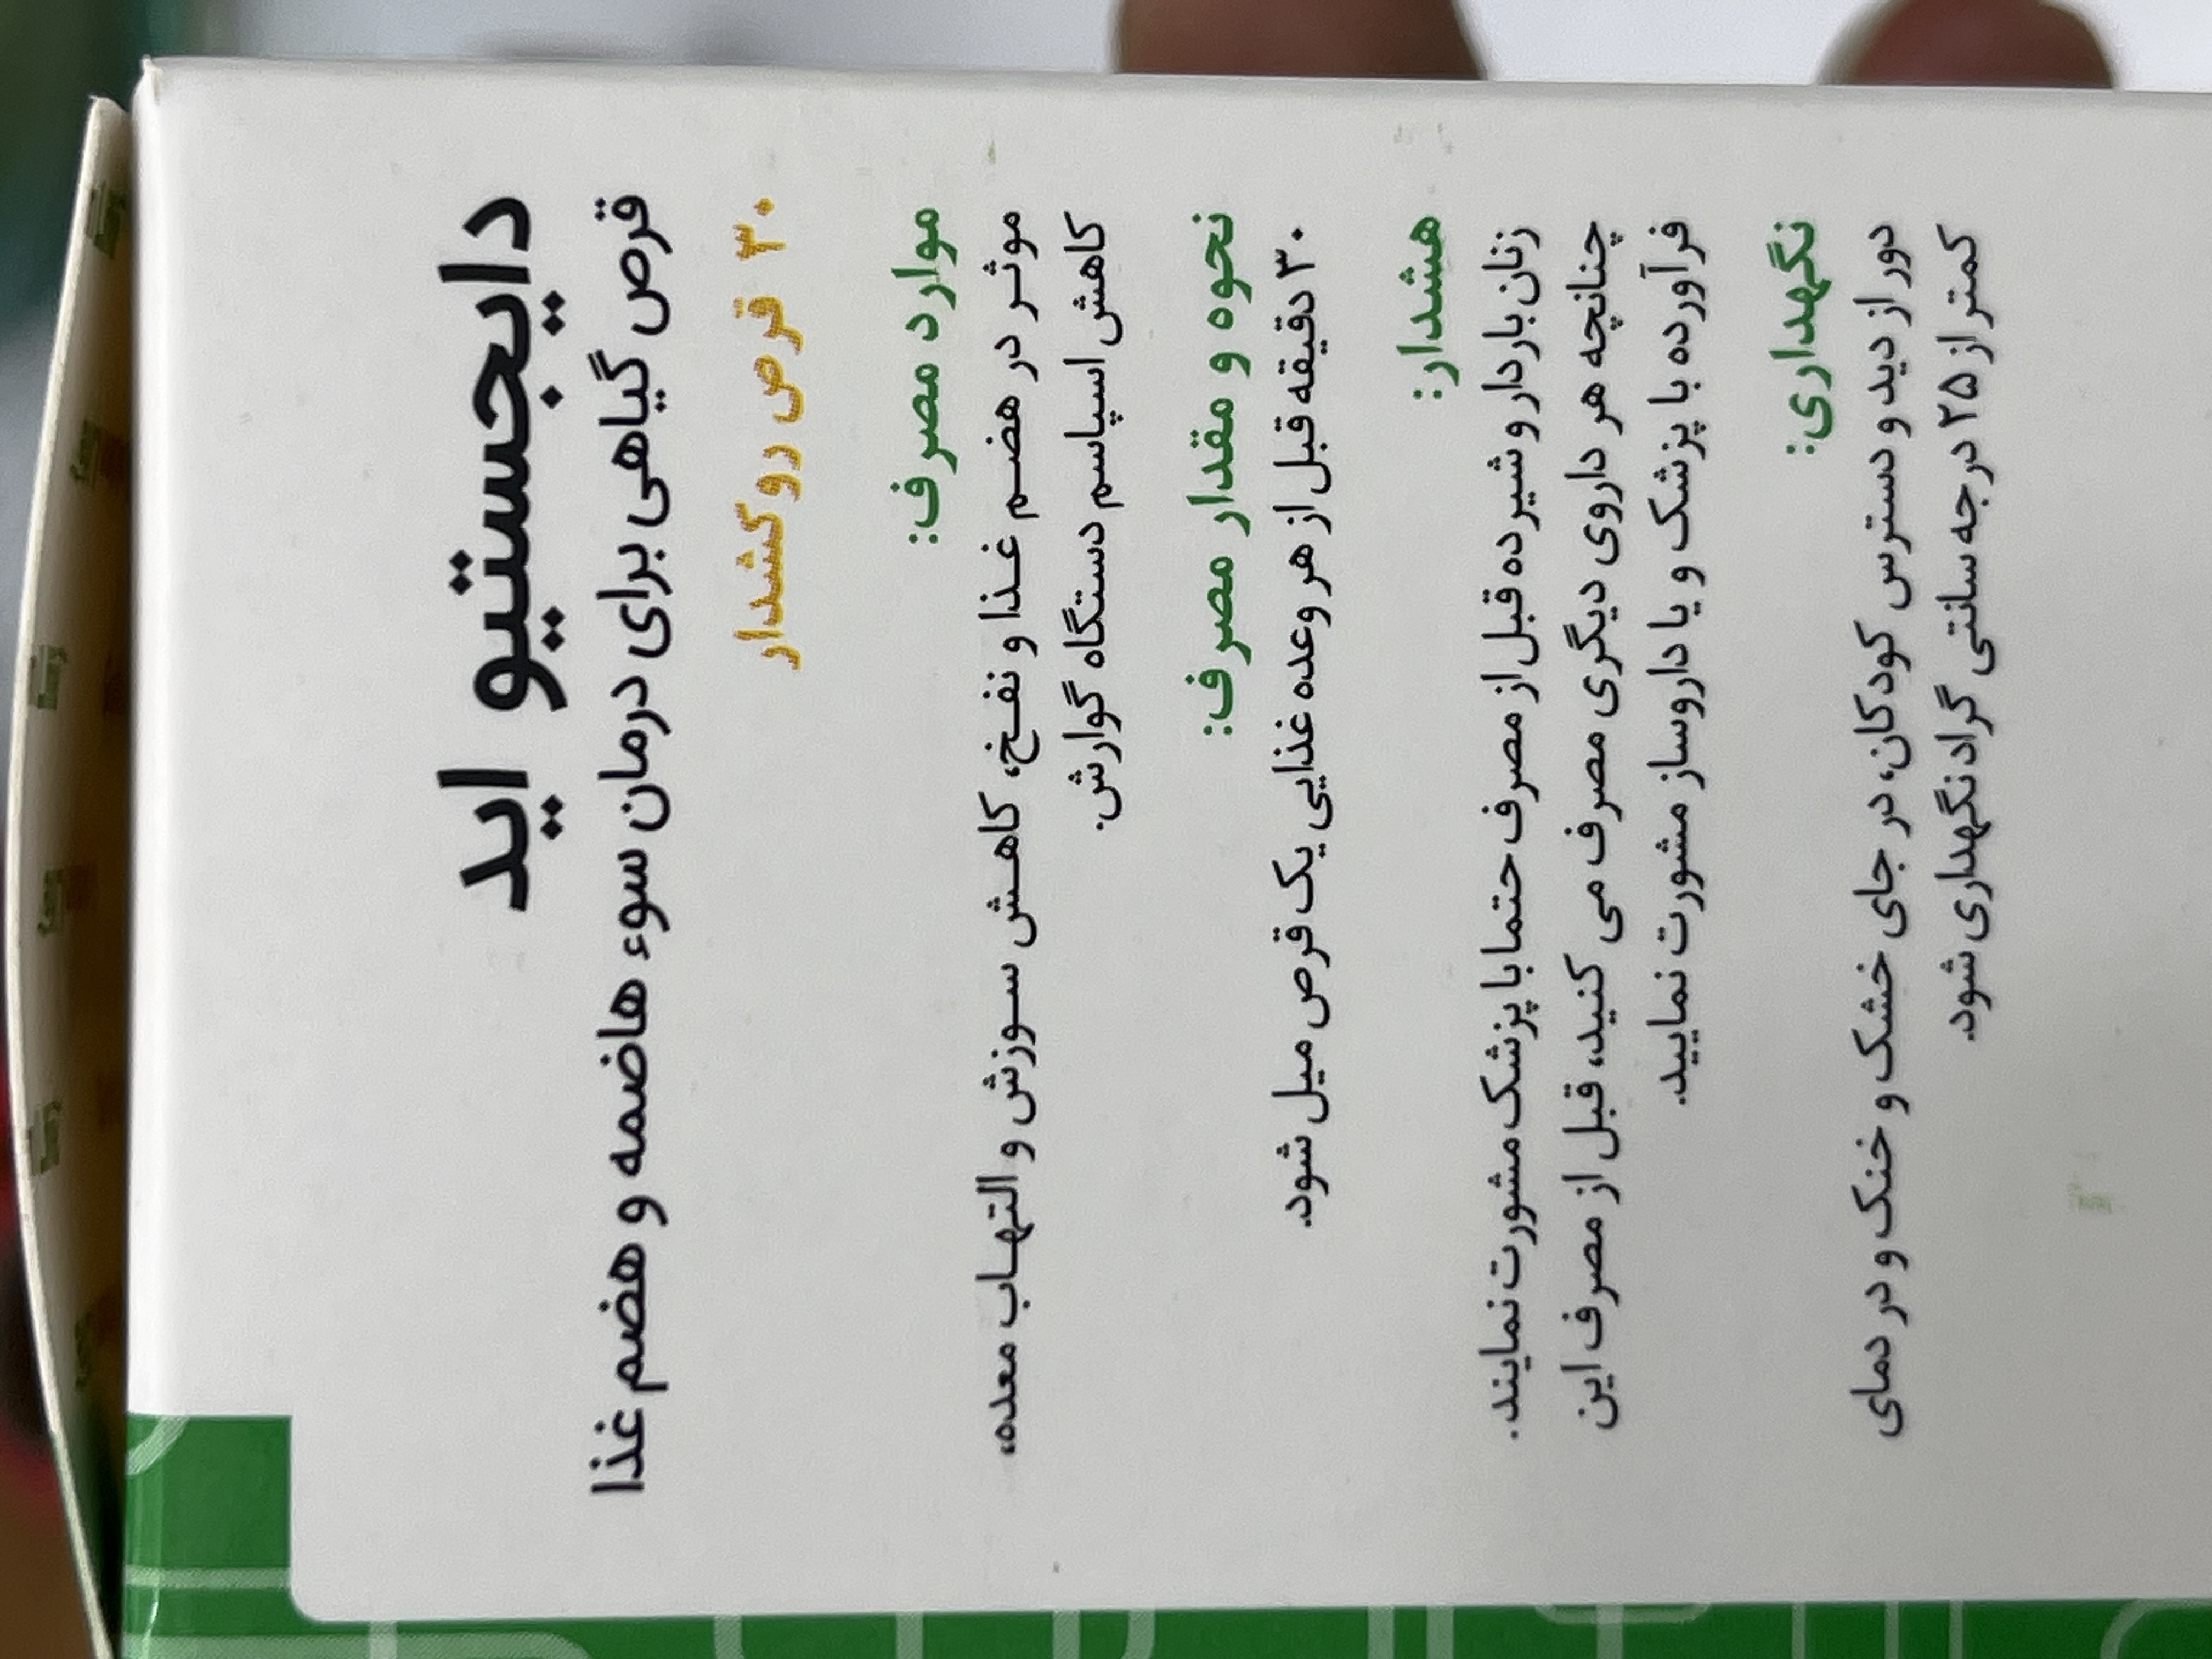 دایجستیو اید
قرص گیاهی برای درمان سوء هاضمه و هضم غذا
۳۰ قرص روکشدار
موارد مصرف:
موثر در هضم غذا و نفخ، کاهش سوزش و التهاب معده،
کاهش اسپاسم دستگاه گوارش.
نحوه و مقدار مصرف:
۳۰ دقیقه قبل از هر وعده غذایی یک قرص میل شود.
هشدار:
زنان باردار و شیرده قبل از مصرف حتما با پزشک مشورت نمایند.
چنانچه هر داروی دیگری مصرف می کنید، قبل از مصرف این
فرآورده با پزشک و یا داروساز مشورت نمایید.
نگهداری:
دور از دید و دسترس کودکان، در جای خشک و خنک و در دمای
کمتر از ۲۵ درجه سانتی گراد نگهداری شود.